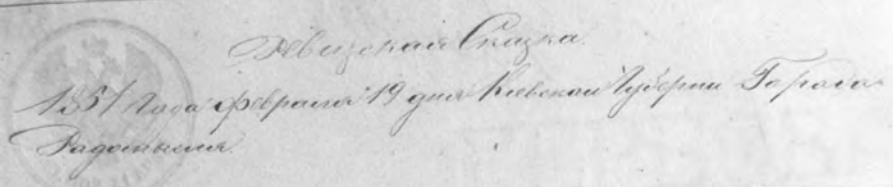 Ревизская Сказка.
1851 Года февраля 19 дня Киевской Губернии Города
Радомысля.